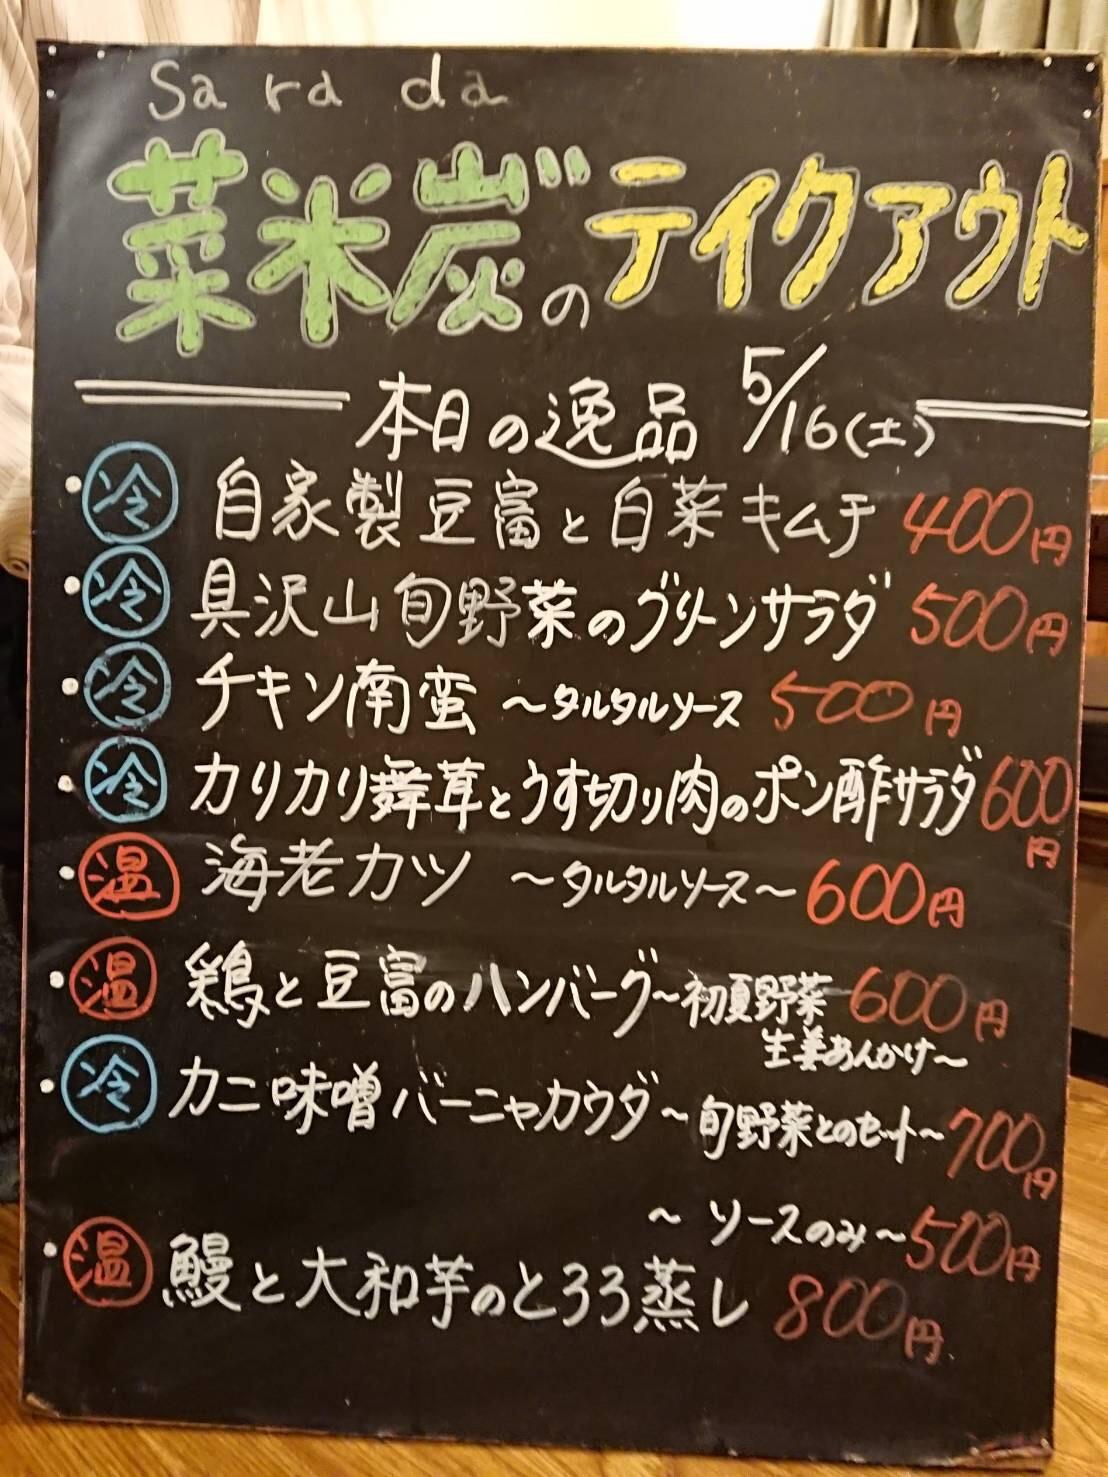 Sa ra da
菜米炭゛のテイクアウト
本日の逸品 5/16(土)
・冷 自家製豆富と白菜キムチ 400円
・冷 具沢山旬野菜のグリーンサラダ 500円
・冷 チキン南蛮 〜タルタルソース 500円
・冷 カリカリ舞茸とうす切り肉のポン酢サラダ 600円
・温 海老カツ 〜タルタルソース〜 600円
・温 鶏と豆富のハンバーグ〜初夏野菜 600円
生姜あんかけ〜
・冷 カニ味噌バーニャカウダ〜旬野菜とのセット〜 700円
〜ソースのみ〜 500円
・温 鰻と大和芋のとろろ蒸し 800円